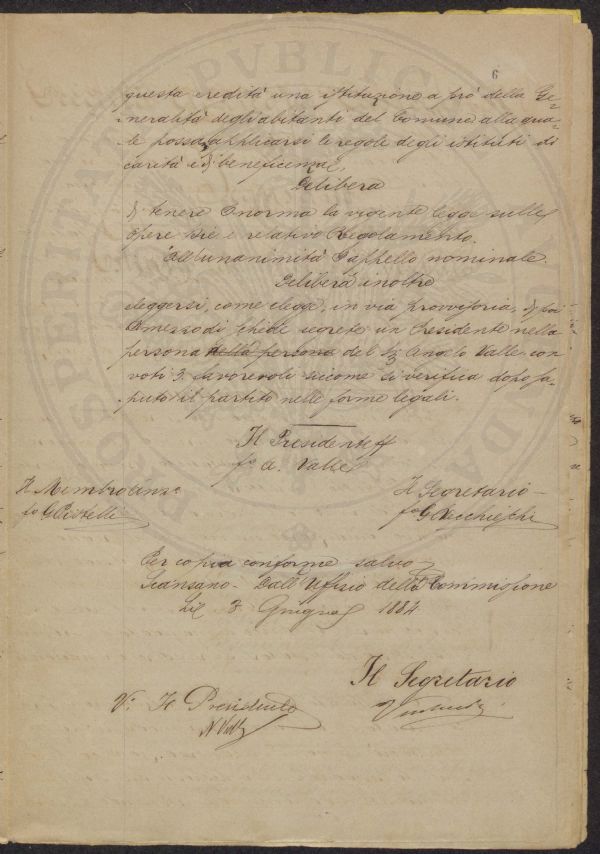 6
questa eredità una istituzione a prò della Ge-
neralità degli abitanti del Comune alla qua-
le possa applicarsi le regole degli istituti di
carità e di beneficenza,
Delibera
di tenere a norma la vigente legge sulle
Opere Pie e relativo Regolamento.
All'unanimità Pappello nominale.
Delibera inoltre
eleggersi, come elegge, in via provvisoria, e poi
a mezzo di schede segrete un Presidente nella
persona della persona del Sig. Angelo Valle con
voti 3 favorevoli siccome si verifica dopo sa-
puto il partito nelle forme legali.
Il Presidente ff
fo A. Valle
Il Membro anz.
fo G. Pistelli
Il Segretario
fo G. Vecchieschi
Per copia conforme salvo
Scansano - Dall'Uffizio della Commissione
Lì 3 Giugno 1884
Il Segretario
V. Il Presidente
PVBLIC
PROSPERITAT